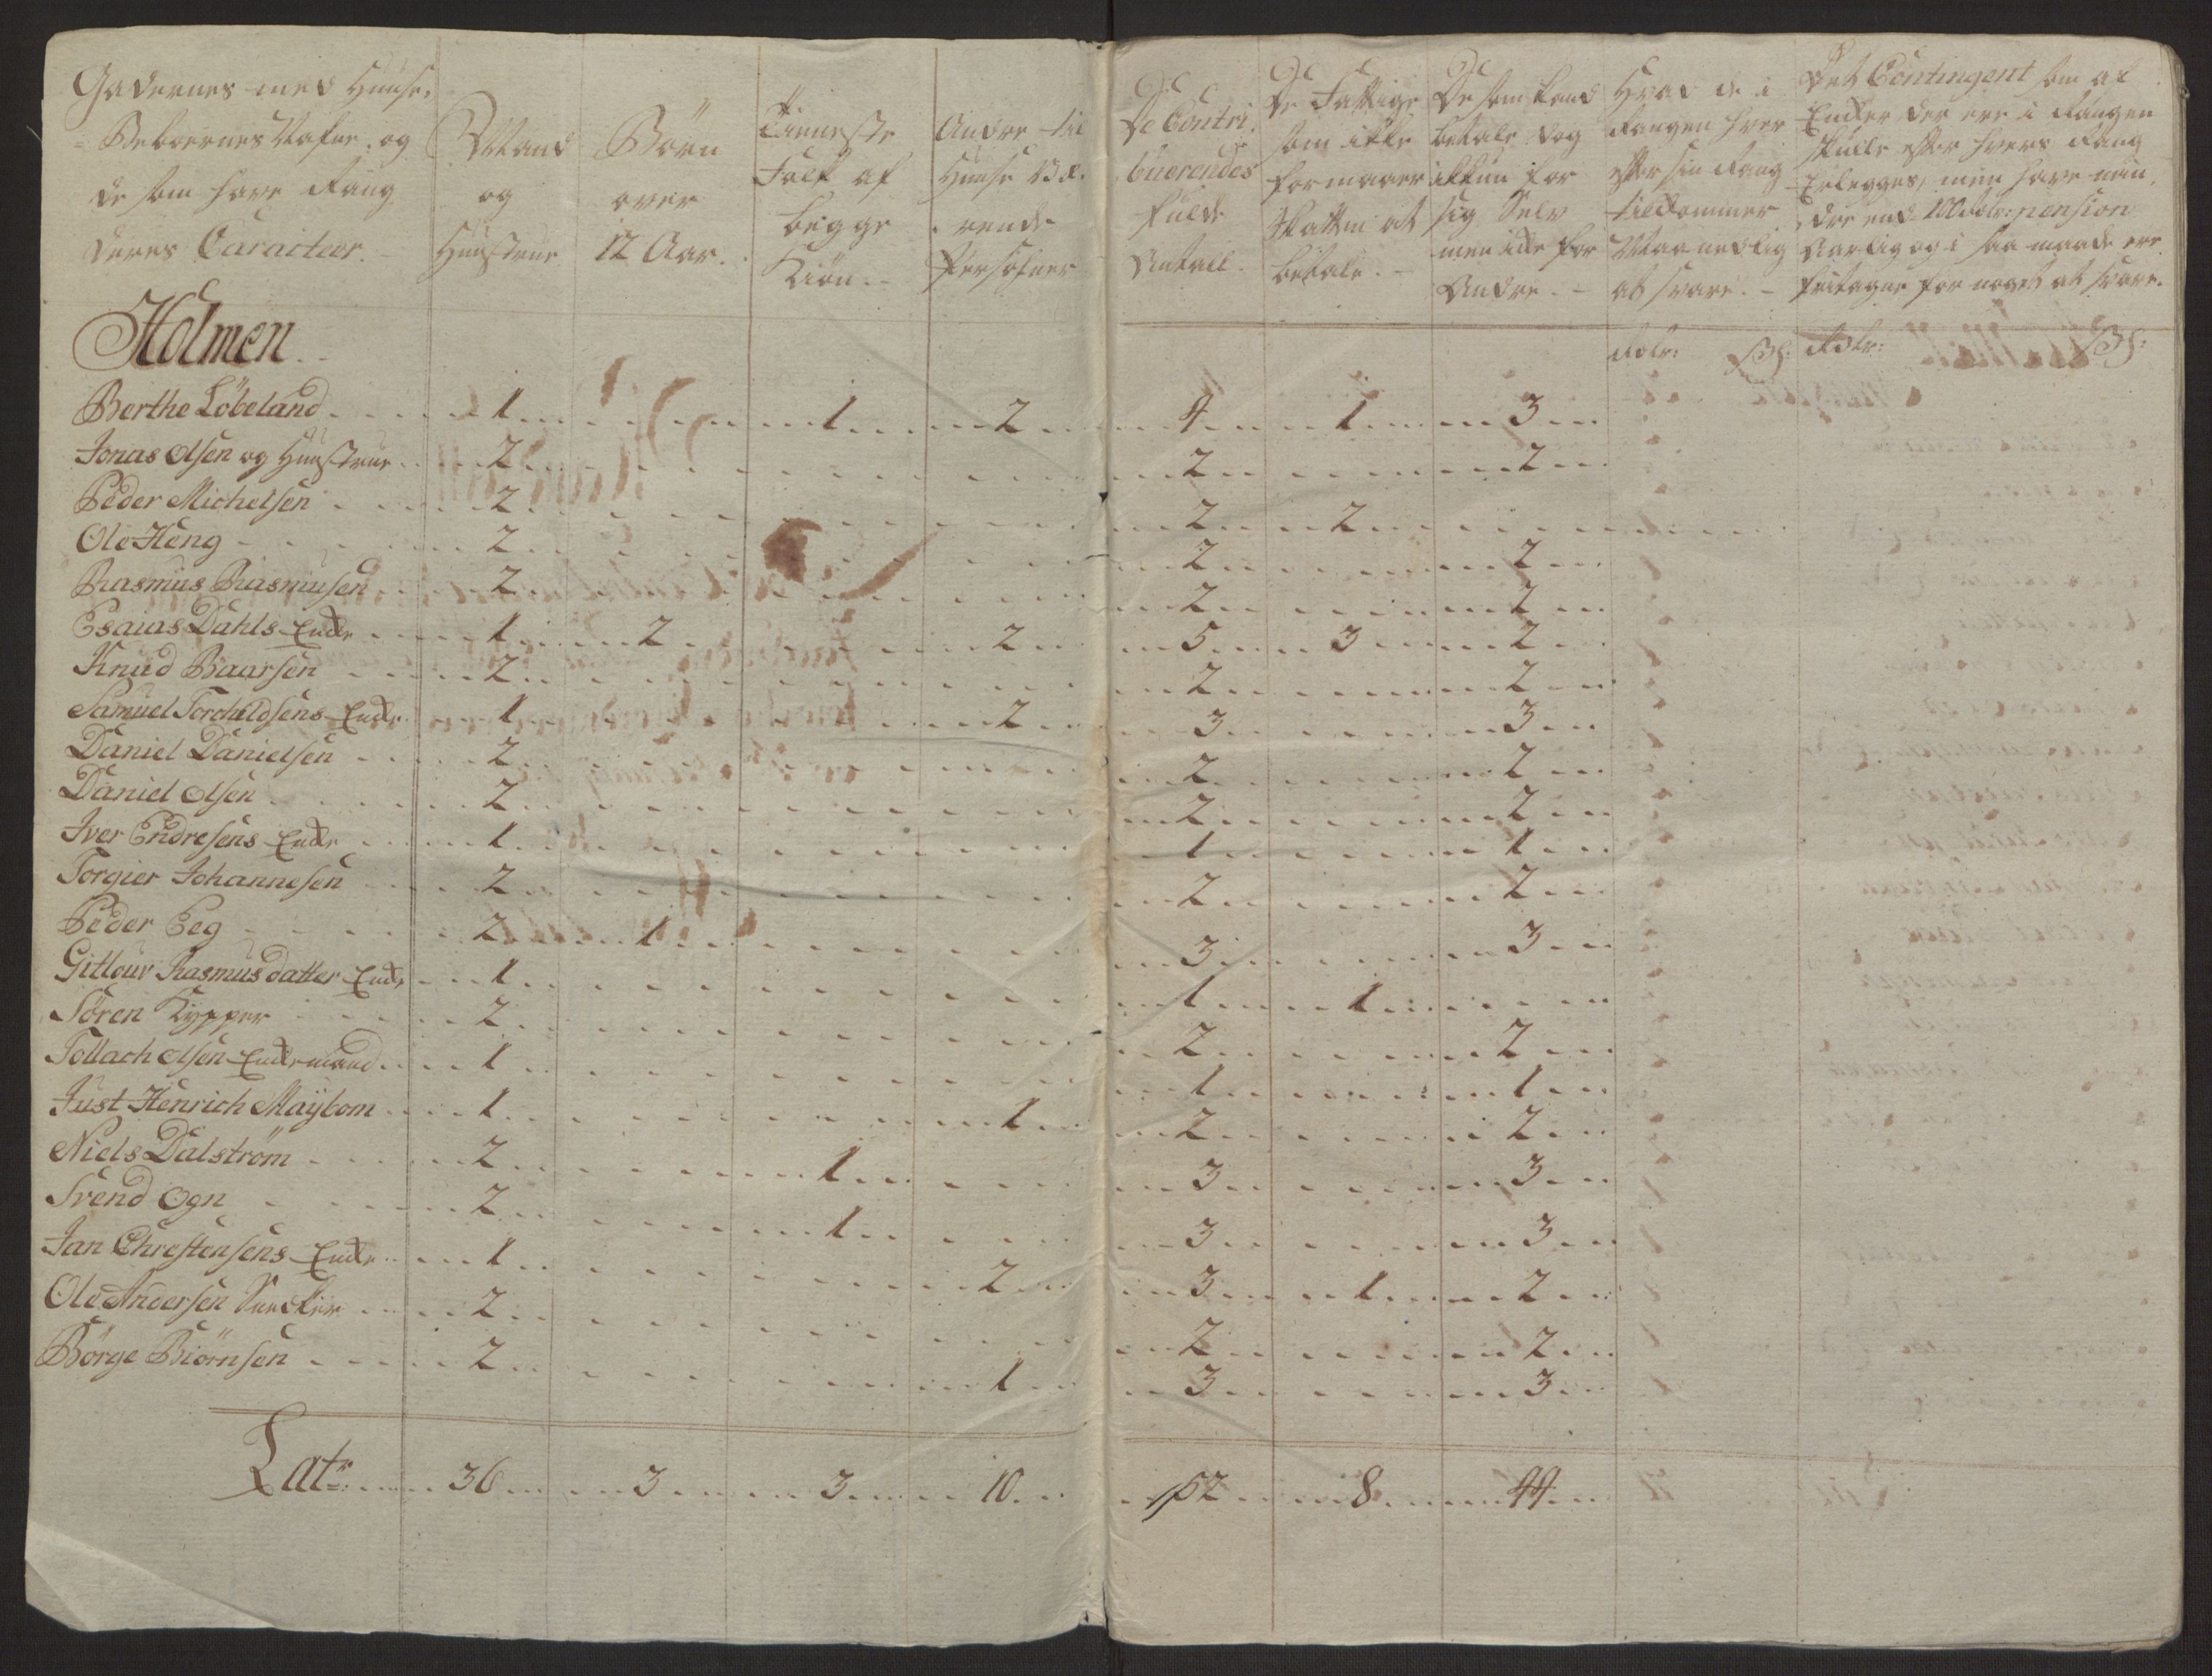 Gadernes med Huuse,
Beboernes Nafne, og
de som have Rang
deres Caracteer.
Mand
og
Hustrue
Börn
over
12 Aar.
Tieneste
Folk af
begge
Kiön.
Andre til
Huuse Væ-
rende
Persohner
De Contri-
buerendes
fulde
Antall.
De Fattige
som ikke
formaaer
Skatten at
betale.
De som kand
betale dog
ikkun for
sig Selv
men ikke for
Andre.
Hvad de i
Rangen hver
efter sin Rang
tilkommer
Maanedlig
at svare.
Det Contingent som af
Enker der ere i Rangen
skulle efter hvers Rang
Erlegges, men have min-
dre end 100 rdlr: pension
Aarlig og i saa maade ere
fritagne for noget at svare.
Holmen
Rdlr: ß: Rdlr: ß:
Berthe Löbeland 1 1 2 4 1 3
Jonas Olsen og Hustrue 2 2 2
Peder Michelsen 2 2 2
Ole Heng 2 2 2
Rasmus Rasmusen 2 2 2
Esaias Dahls Enke 1 2 2 5 3 2
Knud Baarsen 2 2 2
Samuel Torchildsens Enke 1 2 3 3
Daniel Danielsen 2 2 2
Daniel Olsen 2 2 2
Iver Endresens Enke 1 1 1
Torgier Johannesen 2 2 2
Peder Eeg 2 1 3 3
Gitlour Rasmusdatter Enke 1 1 1
Sören Kypper 2 2 2
Tollach Olsen Enkemand 1 1 1
Just Henrich Maybom 1 1 2 2
Niels Dalström 2 1 3 3
Svend Ogn 2 1 3 3
Jan Chrestensens Enke 1 2 3 1 2
Ole Andersen Snecker 2 2 2
Börge Biörnsen 2 1 3 3
Latr 36 3 3 10 52 8 44